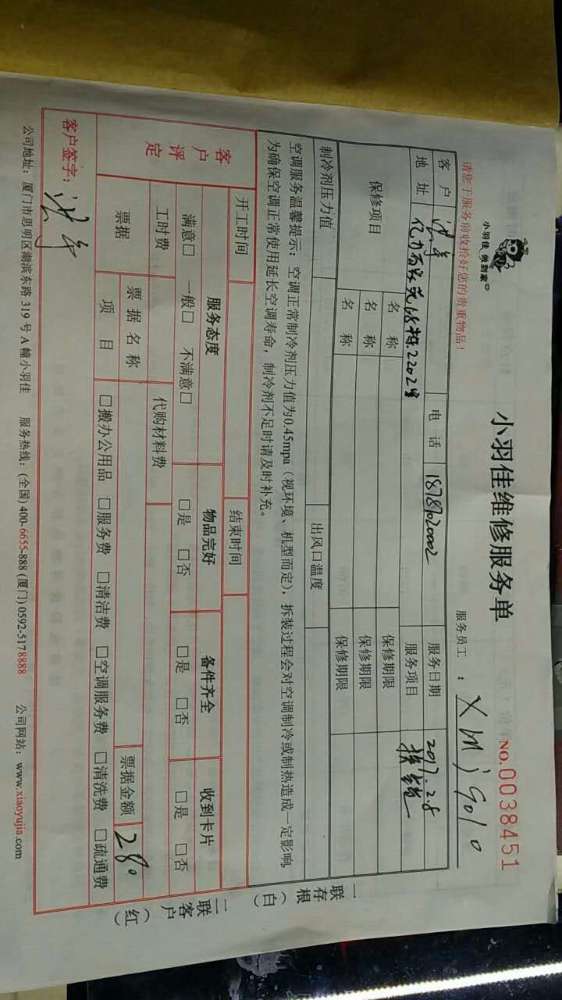 小羽佳维修服务单
小羽佳 家到家
请您于服务前收拾好您的贵重物品！
服务员工：XMj9010
NO.0038451
客户 洪
电话
服务日期 2017.2.8
地址
服务项目 换锁
保修项目
名称
保修期限
名称
保修期限
名称
保修期限
制冷剂压力值
出风口温度
空调服务温馨提示：空调正常制冷剂压力值为0.45mpa（视环境、机型而定），拆装过程会对空调制冷或制热造成一定影响，
为确保空调正常使用延长空调寿命，制冷剂不足时请及时补充。
一存根（白）联
开工时间
结束时间
客户评定
服务态度
物品完好
备件齐全
收到卡片
满意□ 一般□ 不满意□
□是 □否
□是 □否
□是 □否
工时费
代购材料费
票据
票据名称
票据金额 280
项目
□搬办公用品 □服务费 □清洁费 □空调服务费 □清洗费 □疏通费
二客户（红）联
客户签字：洪
公司地址：厦门市思明区湖滨东路319号A幢小羽佳 服务热线：(全国)400-6655-888 (厦门)0592-5178888 公司网站：www.xiaoyujia.com